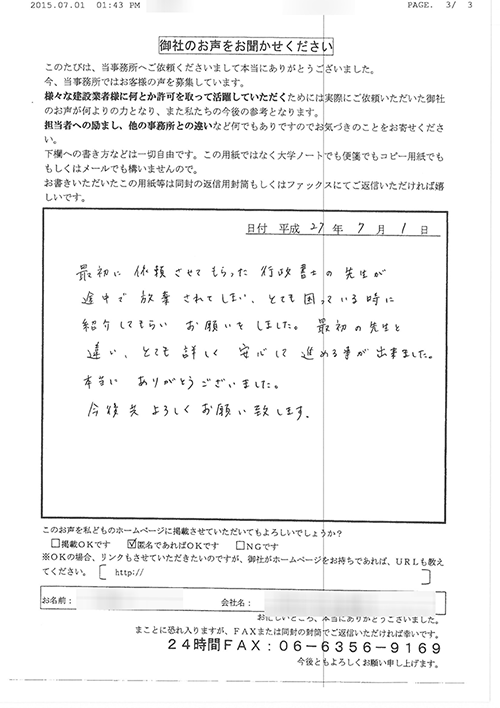 2015.07.01 01:43 PM PAGE. 3/ 3
御社のお声をお聞かせください
このたびは、当事務所へご依頼くださいまして本当にありがとうございました。
今、当事務所ではお客様の声を募集しています。
様々な建設業者様に何とか許可を取って活躍していただくためには実際にご依頼いただいた御社
のお声が何よりの力となり、また私たちの今後の参考となります。
担当者への励まし、他の事務所との違いなど何でもありですのでお気づきのことをお寄せくださ
い。
下欄への書き方などは一切自由です。この用紙ではなく大学ノートでも便箋でもコピー用紙でも
もしくはメールでも構いませんので。
お書きいただいたこの用紙等は同封の返信用封筒もしくはファックスにてご返信いただければ嬉
しいです。
日付 平成 27 年 7 月 1 日
最初に 依頼させてもらった 行政書士の先生が
途中で 放棄されてしまい、とても困っている時に
紹介してもらい お願いをしました。 最初の先生と
違い、とても 詳しく 安心して 進める事が出来ました。
本当に ありがとうございました。
今後共 よろしく お願い致します。
このお声を私どものホームページに掲載させていただいてもよろしいでしょうか？
□掲載ＯＫです ☑匿名であればＯＫです □ＮＧです
※ＯＫの場合、リンクもさせていただきたいのですが、御社がホームページをお持ちであれば、ＵＲＬも教え
てください。 [ http:// ]
お名前： 会社名：
お忙しいところ、本当にありがとうございました。
まことに恐れ入りますが、ＦＡＸまたは同封の封筒でご返信いただければ幸いです。
２４時間ＦＡＸ：０６－６３５６－９１６９
今後ともよろしくお願い申し上げます。